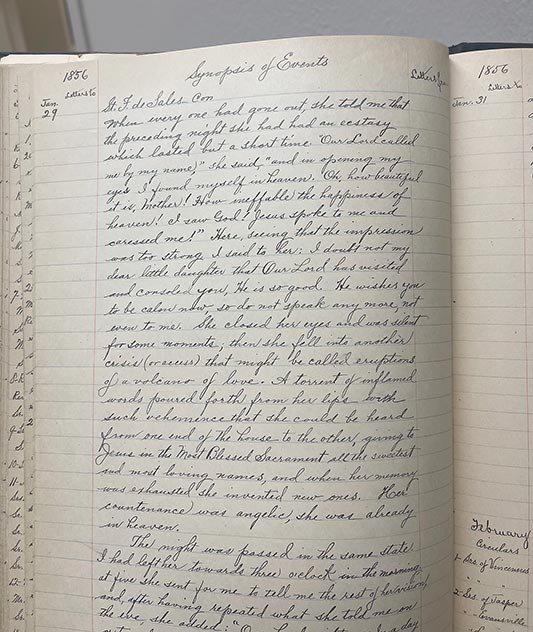 1856
Synopsis of Events
Letters to
Jan.
29
St. F. de Sales - Con
When every one had gone out, she told me that
the preceding night she had had an ecstasy
which lasted but a short time "Our Lord called
me by my name," she said, "and in opening my
eyes I found myself in heaven. Oh, how beautiful
it is, Mother! How ineffable the happiness of
heaven! I saw God! Jesus spoke to me and
caressed me!" Here, seeing that the impression
was too strong I said to her: I doubt not my
dear little daughter that Our Lord has visited
and consoled you, He is so good. He wishes you
to be calm now, so do not speak any more, not
even to me. She closed her eyes and was silent
for some moments, then she fell into another
crisis (or access) that might be called eruptions
of a volcano of love. A torrent of inflamed
words poured forth from her lips with
such vehemence that she could be heard
from one end of the house to the other, giving to
Jesus in the Most Blessed Sacrament all the sweetest
and most loving names, and when her memory
was exhausted she invented new ones. Her
countenance was angelic, she was already
in heaven.
The night was passed in the same state.
I had left her towards three o'clock in the morning,
at five she sent for me to tell me the rest of her vision,
and, after having repeated what she told me on
the eve, she added: "
1856
Letters to
Jan. 31
February
Circulars
1- Arc of Vincennes
2- Sec of Jasper
" Evansville